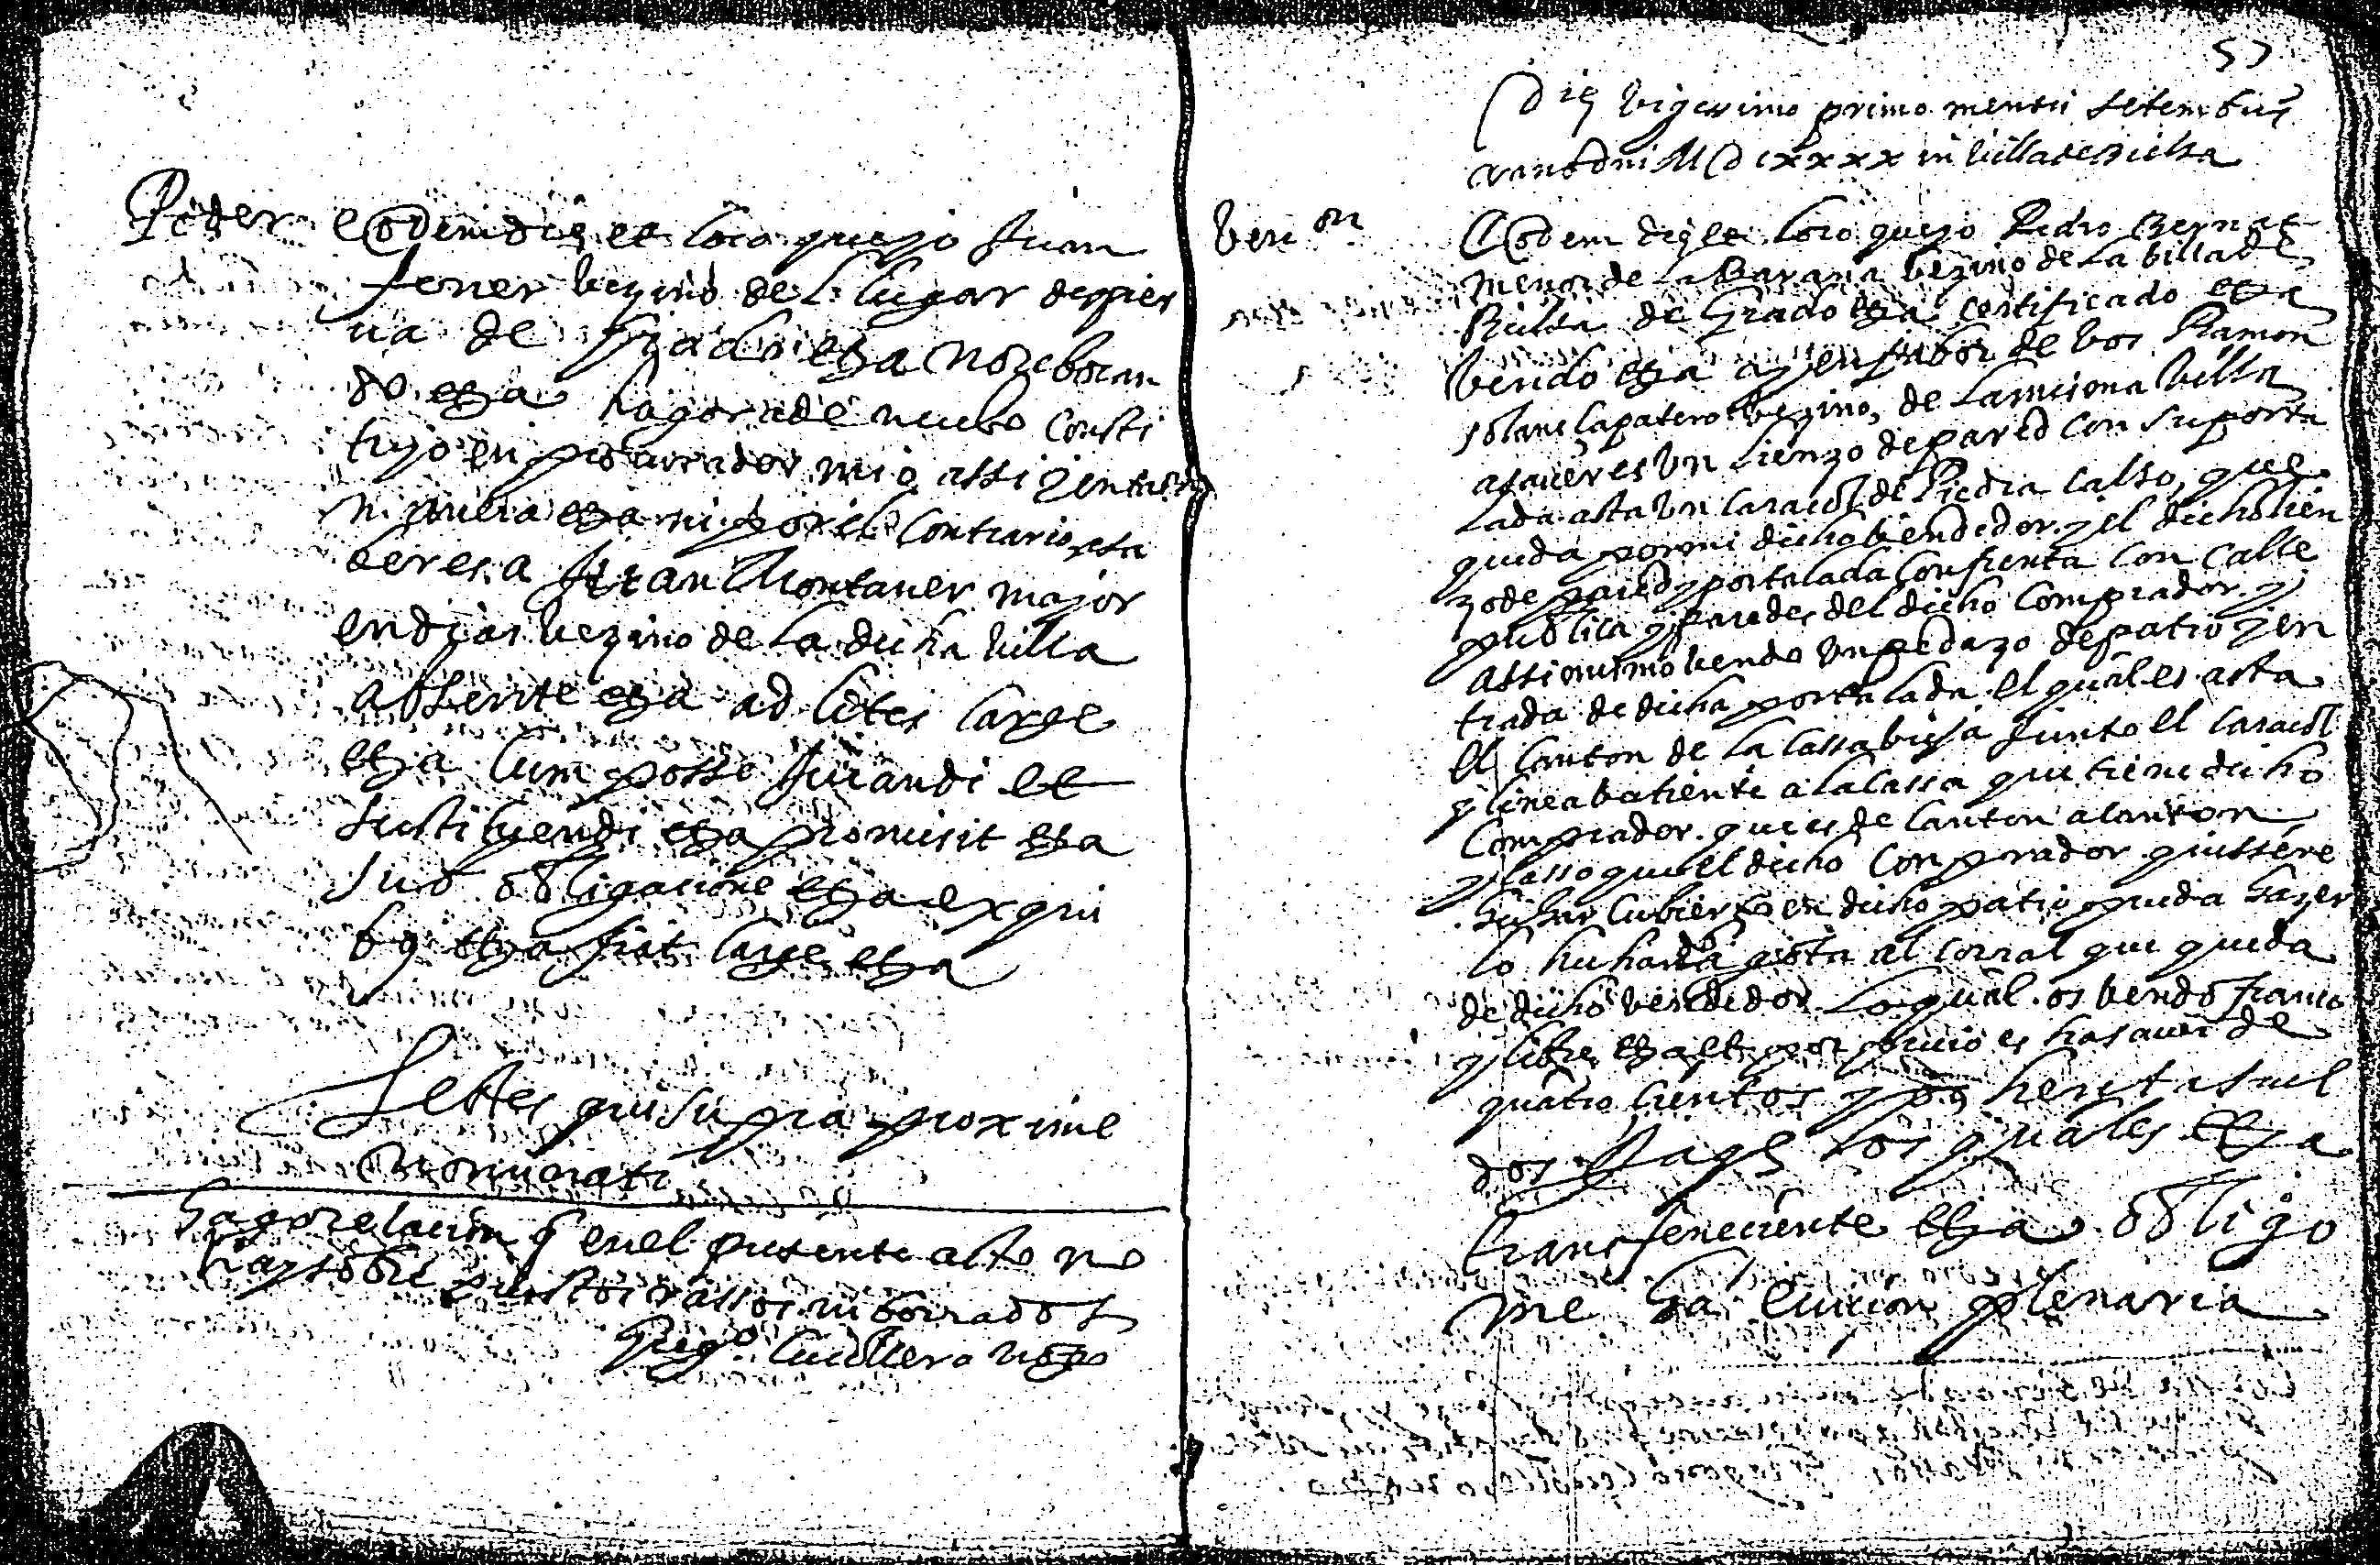 Poder
eodem die et loco que yo Juan
ferrer vezino del lugar de puey
ua de etza no rebocan
do etza hagora de nuebo consti
tuyo en procurador mio assi
etza ni por el contrario
beres a Juan Montaner mayor
en dias vezino de la dicha villa
absente etza ad lites large
etza cum posse Jurandi et
sustituendi etza promisit etza
sub obligacione etza ex qui
bus etza fiat large etza
Testes qui supra proxime
nominati
Hago relacion q en el presente acto no
hay sobre puestos rassos ni borrados
Greg.º Cuidllero notº
57
Die vigessimo primo mensis setembris
anno dni MDCXXXX in villa de
Ven.on
Eodem die et loco que yo Pedro Bernat
menor de la Barana vezino de la billa de
de Grado etza certificado etza
Vendo etza a y en fabor de vos Ramon
solano capatero vezino, de la misma villa
asauer es Vn lienzo de pared con su porta
lada asta Vn caracol de Piedra calso, que
queda por mi dicho bendedor y el dicho lien
zo de pared y portalada confrenta con calle
publica y paredes del dicho comprador. y
assimismo vendo Vn pedazo de patio y en
trada de dicha portalada el qual es asta
el canton de la cassa bieja Junto el caracol
y linea batiente a la cassa que tiene dicho
comprador. que es de canton a canton
y casso que el dicho conprador quissiere
cubierto en dicho patio pueda hazer
lo gota al corral que queda
de dicho vendedor lo qual os vendo franco
y libre etza et por precio es ha sauer de
quatro cientos y
dos Jaqs los quales etza
transfenecientte etza obligo
me ha euicion plenaria